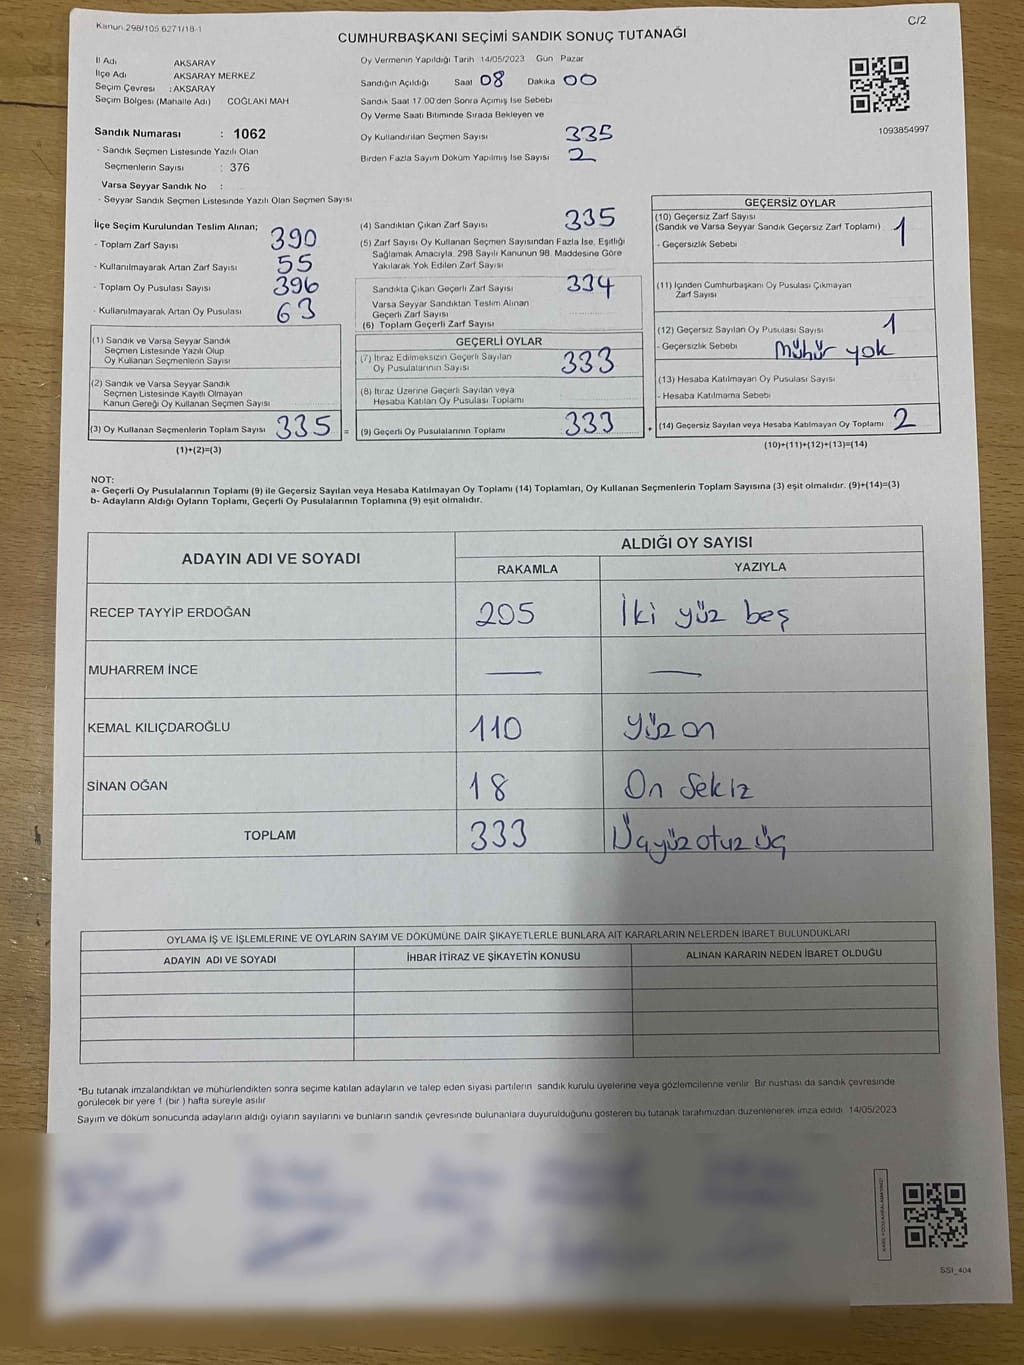 Kanun 298/105 6271/18-1
C/2
CUMHURBAŞKANI SEÇİMİ SANDIK SONUÇ TUTANAĞI
İl Adı AKSARAY
İlçe Adı AKSARAY MERKEZ
Seçim Çevresi : AKSARAY
Seçim Bölgesi (Mahalle Adı) COĞLAKI MAH
Sandık Numarası : 1062
- Sandık Seçmen Listesinde Yazılı Olan
Seçmenlerin Sayısı : 376
Varsa Seyyar Sandık No :
- Seyyar Sandık Seçmen Listesinde Yazılı Olan Seçmen Sayısı
Oy Vermenin Yapıldığı Tarih 14/05/2023 Gün Pazar
Sandığın Açıldığı Saat 08 Dakika 00
Sandık Saat 17.00'den Sonra Açımış İse Sebebi
Oy Verme Saati Bitiminde Sırada Bekleyen ve
Oy Kullandırılan Seçmen Sayısı 335
Birden Fazla Sayım Döküm Yapılmış İse Sayısı 2
1093854997
İlçe Seçim Kurulundan Teslim Alınan;
- Toplam Zarf Sayısı 390
- Kullanılmayarak Artan Zarf Sayısı 55
- Toplam Oy Pusulası Sayısı 396
- Kullanılmayarak Artan Oy Pusulası 63
(1) Sandık ve Varsa Seyyar Sandık
Seçmen Listesinde Yazılı Olup
Oy Kullanan Seçmenlerin Sayısı
(2) Sandık ve Varsa Seyyar Sandık
Seçmen Listesinde Kayıtlı Olmayan
Kanun Gereği Oy Kullanan Seçmen Sayısı
(3) Oy Kullanan Seçmenlerin Toplam Sayısı 335 =
(1)+(2)=(3)
(4) Sandıktan Çıkan Zarf Sayısı 335
(5) Zarf Sayısı Oy Kullanan Seçmen Sayısından Fazla İse, Eşitliği
Sağlamak Amacıyla, 298 Sayılı Kanunun 98. Maddesine Göre
Yakılarak Yok Edilen Zarf Sayısı
Sandıkta Çıkan Geçerli Zarf Sayısı 334
Varsa Seyyar Sandıktan Teslim Alınan
Geçerli Zarf Sayısı
(6) Toplam Geçerli Zarf Sayısı
GEÇERLİ OYLAR
(7) İtiraz Edilmeksizin Geçerli Sayılan
Oy Pusulalarının Sayısı 333
(8) İtiraz Üzerine Geçerli Sayılan veya
Hesaba Katılan Oy Pusulası Toplamı
(9) Geçerli Oy Pusulalarının Toplamı 333 +
GEÇERSİZ OYLAR
(10) Geçersiz Zarf Sayısı
(Sandık ve Varsa Seyyar Sandık Geçersiz Zarf Toplamı) 1
- Geçersizlik Sebebi
(11) İçinden Cumhurbaşkanı Oy Pusulası Çıkmayan
Zarf Sayısı
(12) Geçersiz Sayılan Oy Pusulası Sayısı 1
- Geçersizlik Sebebi mühür yok
(13) Hesaba Katılmayan Oy Pusulası Sayısı
- Hesaba Katılmama Sebebi
(14) Geçersiz Sayılan veya Hesaba Katılmayan Oy Toplamı 2
(10)+(11)+(12)+(13)=(14)
NOT:
a- Geçerli Oy Pusulalarının Toplamı (9) ile Geçersiz Sayılan veya Hesaba Katılmayan Oy Toplamı (14) Toplamları, Oy Kullanan Seçmenlerin Toplam Sayısına (3) eşit olmalıdır. (9)+(14)=(3)
b- Adayların Aldığı Oyların Toplamı, Geçerli Oy Pusulalarının Toplamına (9) eşit olmalıdır.
ADAYIN ADI VE SOYADI
ALDIĞI OY SAYISI
RAKAMLA YAZIYLA
RECEP TAYYİP ERDOĞAN 205 İki yüz beş
MUHARREM İNCE — —
KEMAL KILIÇDAROĞLU 110 Yüz on
SİNAN OĞAN 18 On Sekiz
TOPLAM 333 Üçyüz otuz üç
OYLAMA İŞ VE İŞLEMLERİNE VE OYLARIN SAYIM VE DÖKÜMÜNE DAİR ŞİKAYETLERLE BUNLARA AİT KARARLARIN NELERDEN İBARET BULUNDUKLARI
ADAYIN ADI VE SOYADI İHBAR İTİRAZ VE ŞİKAYETİN KONUSU ALINAN KARARIN NEDEN İBARET OLDUĞU
*Bu tutanak imzalandıktan ve mühürlendikten sonra seçime katılan adayların ve talep eden siyasi partilerin sandık kurulu üyelerine veya gözlemcilerine verilir. Bir nüshası da sandık çevresinde
görülecek bir yere 1 (bir) hafta süreyle asılır
Sayım ve döküm sonucunda adayların aldığı oyların sayılarını ve bunların sandık çevresinde bulunanlara duyurulduğunu gösteren bu tutanak tarafımızdan düzenlenerek imza edildi. 14/05/2023
SSI_404